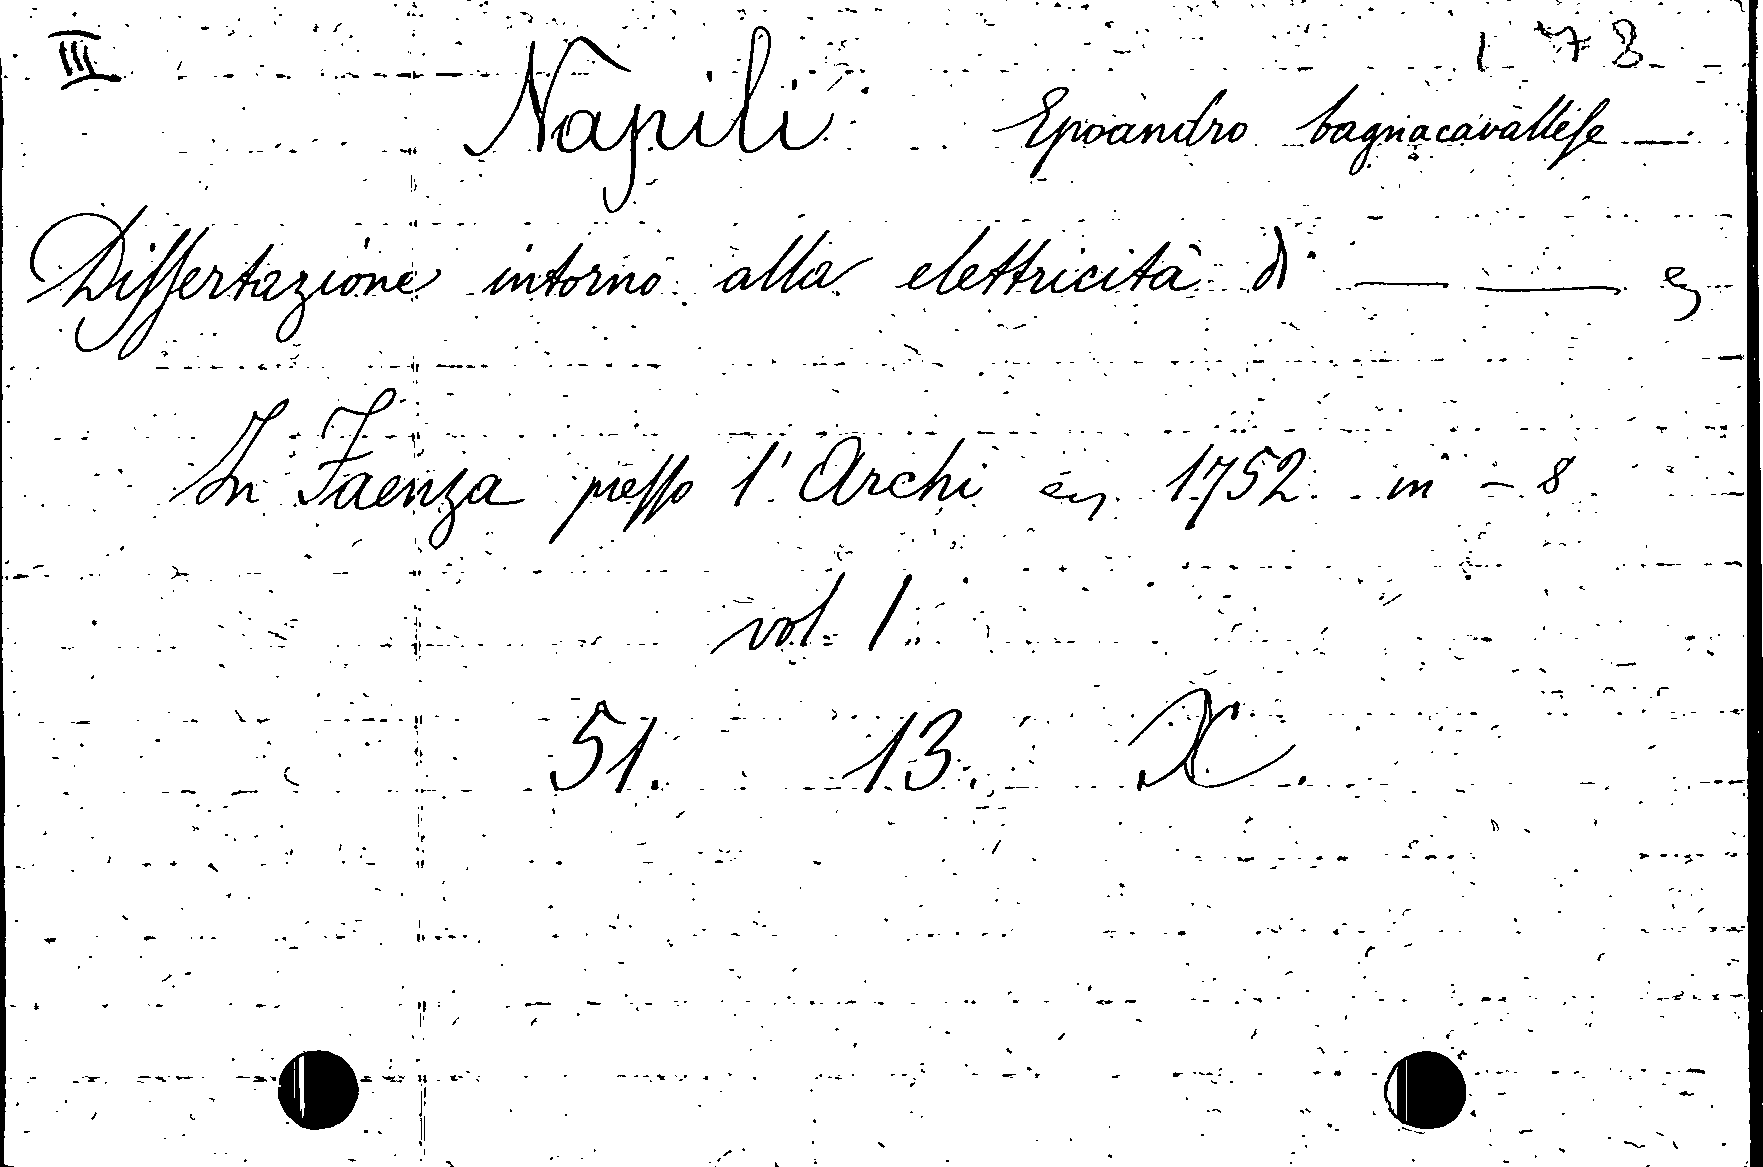 III 178
Napili Epoandro bagnacavallese —
Dissertazione intorno alla elettricità di — —
In Faenza presso l'Archi 1752. in - 8
vol. 1
51. 13. X.